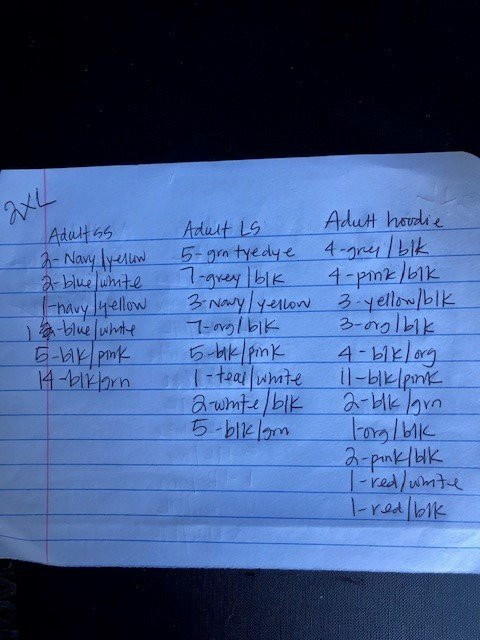 2XL
Adult SS
2-Navy/yellow
2-blue/white
1-navy/yellow
1-blue/white
5-blk/pink
14-blk/grn
Adult LS
5-grn tyedye
7-grey/blk
3-Navy/yellow
7-org/blk
5-blk/pink
1-teal/white
2-white/blk
5-blk/grn
Adult hoodie
4-grey/blk
4-pink/blk
3-yellow/blk
3-org/blk
4-blk/org
11-blk/pink
2-blk/grn
1-org/blk
2-pink/blk
1-red/white
1-red/blk